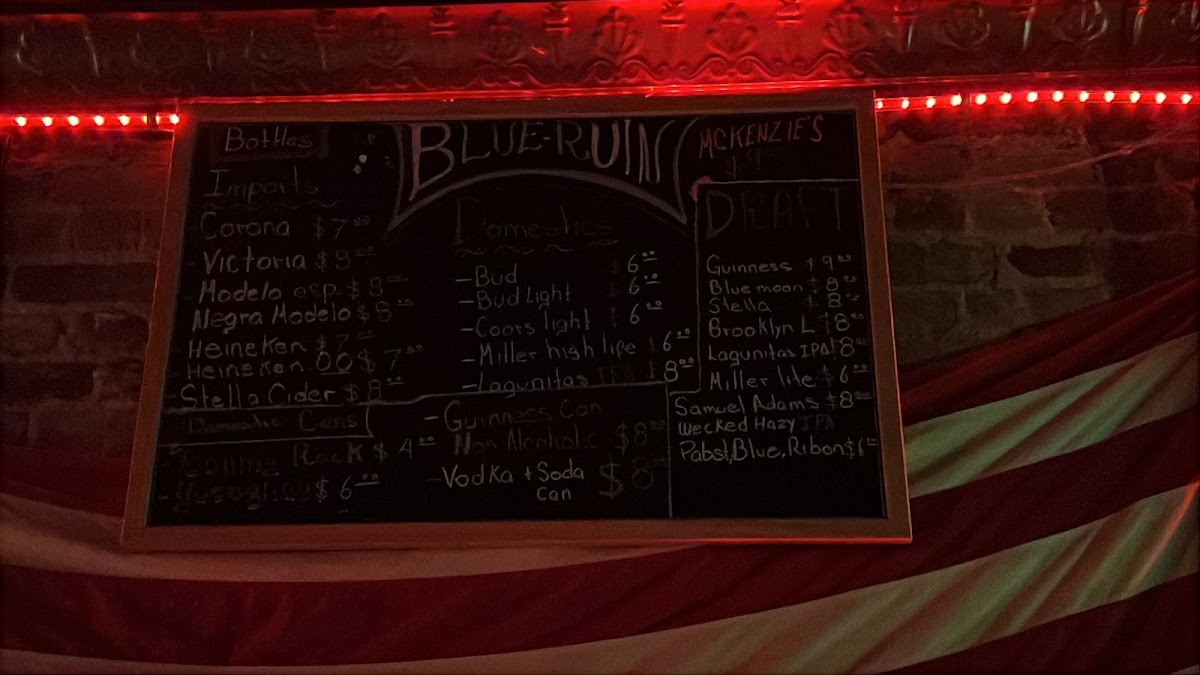 Bottles
Imports
Corona $7.00
- Victoria $8.00
- Modelo esp. $8.00
Negra Modelo $8.00
- Heineken $7.00
- Heineken 00 $7.00
- Stella Cider $8.00
Domestic Cans
- Rolling Rock $4.00
- $6.00
BLUE-RUIN
Domestics
- Bud $6.00
- Bud Light $6.00
- Coors light $6.00
- Miller high life $6.00
- Lagunitas IPA $8.00
- Guinness Can
Non Alcoholic $8.00
- Vodka + Soda $8.00
Can
MCKENZIE'S
DRAFT
Guinness $9.00
Blue moon $8.00
Stella $8.00
Brooklyn L $8.00
Lagunitas IPA $8.00
Miller lite $6.00
Samuel Adams $8.00
wecked Hazy IPA
Pabst,Blue,Ribon $6.00